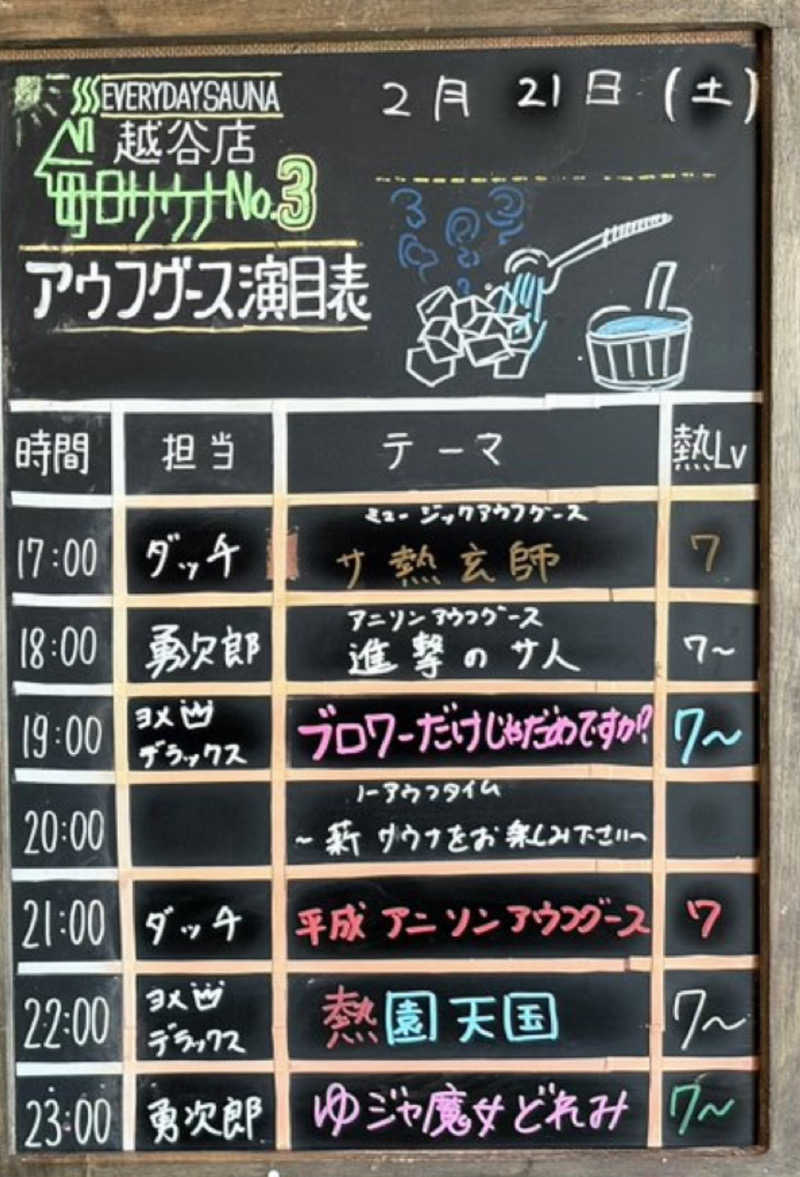 EVERYDAY SAUNA
越谷店
毎日サウナ No.3
2月 21日 (土)
アウフグース演目表
時間 担当 テーマ 熱Lv
ミュージックアウフグース
17:00 ダッチ サ熱玄師 7
アニソンアウフグース
18:00 勇次郎 進撃のサ人 7〜
19:00 ヨメ デラックス ブロワーだけじゃだめですか!? 7〜
ノーアウフタイム
20:00 〜薪サウナをお楽しみ下さい〜
21:00 ダッチ 平成アニソンアウフグース 7
22:00 ヨメ デラックス 熱園天国 7〜
23:00 勇次郎 ゆジャ魔女どれみ 7〜